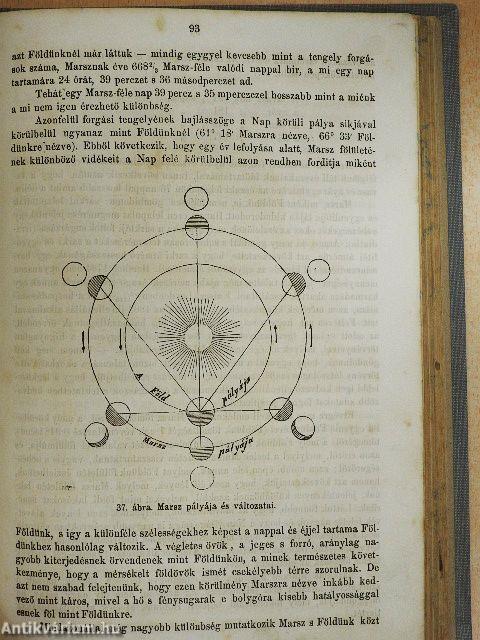 93
azt Földünknél már láttuk — mindig egygyel kevesebb mint a tengely forgá-
sok száma, Marsznak éve 668²/₃ Marsz-féle valódi nappal bir, a mi egy nap
tartamára 24 órát, 39 perczet s 36 másodperczet ad.
Tehát egy Marsz-féle nap 39 percz s 35 mperczczel hosszabb mint a miénk
a mi nem igen érezhető különbség.
Azonfelül forgási tengelyének hajlásszöge a Nap körüli pálya síkjával
körülbelül ugyanaz mint Földünknél (61° 18′ Marszra nézve, 66° 33′ Föl-
dünkre nézve). Ebből következik, hogy egy év lefolyása alatt, Marsz fölületé-
nek különböző vidékeit a Nap felé körülbelül azon rendben forditja miként
A Föld pályája
Marsz pályája
37. ábra. Marsz pályája és változatai.
Földünk, s igy a különféle szélességekhez képest a nappal és éjjel tartama Föl-
dünkhez hasonlólag változik. A végletes övök, a jeges s forró, aránylag na-
gyobb kiterjedésnek örvendenek mint Földünkön, a minek természetes követ-
kezménye, hogy a mérsékelt földövök ismét csekélyebb térre szorulnak. De
azt nem szabad felejtenünk, hogy ezen körülmény Marszra nézve inkább ked-
vező mint káros, mivel a hő s fénysugarak e bolygóra kisebb hatályossággal
esnek föl mint Földünkre.
még nagyobb különbség mutatkozik Marsz s Földünk közt
Antikvarium.hu